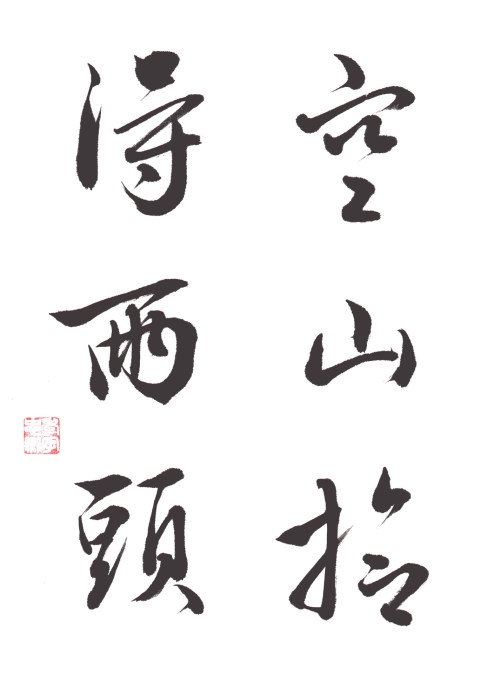 空山拾
得兩頭